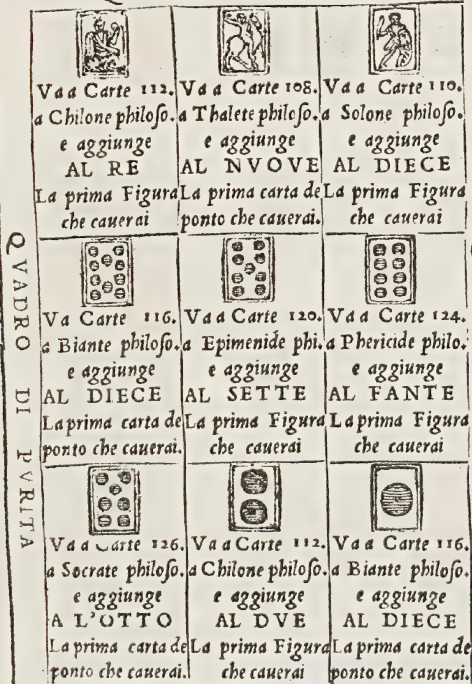 Va a Carte 112.
a Chilone philoſo.
e aggiunge
AL RE
La prima Figura
che cauerai
Va a Carte 108.
a Thalete philoſo.
e aggiunge
AL NVOVE
La prima carta de
ponto che cauerai.
Va a Carte 110.
a Solone philoſo.
e aggiunge
AL DIECE
La prima Figura
che cauerai
QVADRO DI PVRITA
Va Carte 116.
a Biante philoſo.
e aggiunge
AL DIECE
La prima carta de
ponto che cauerai.
Va a Carte 120.
a Epimenide phi.
e aggiunge
AL SETTE
La prima Figura
che cauerai
Va a Carte 124.
a Phericide philo.
e aggiunge
AL FANTE
La prima Figura
che cauerai
Va a Carte 126.
a Socrate philoſo.
e aggiunge
A L'OTTO
La prima carta de
ponto che cauerai.
Va a Carte 112.
a Chilone philoſo.
e aggiunge
AL DVE
La prima Figura
che cauerai
Va a Carte 116.
a Biante philoſo.
e aggiunge
AL DIECE
La prima carta de
ponto che cauerai.